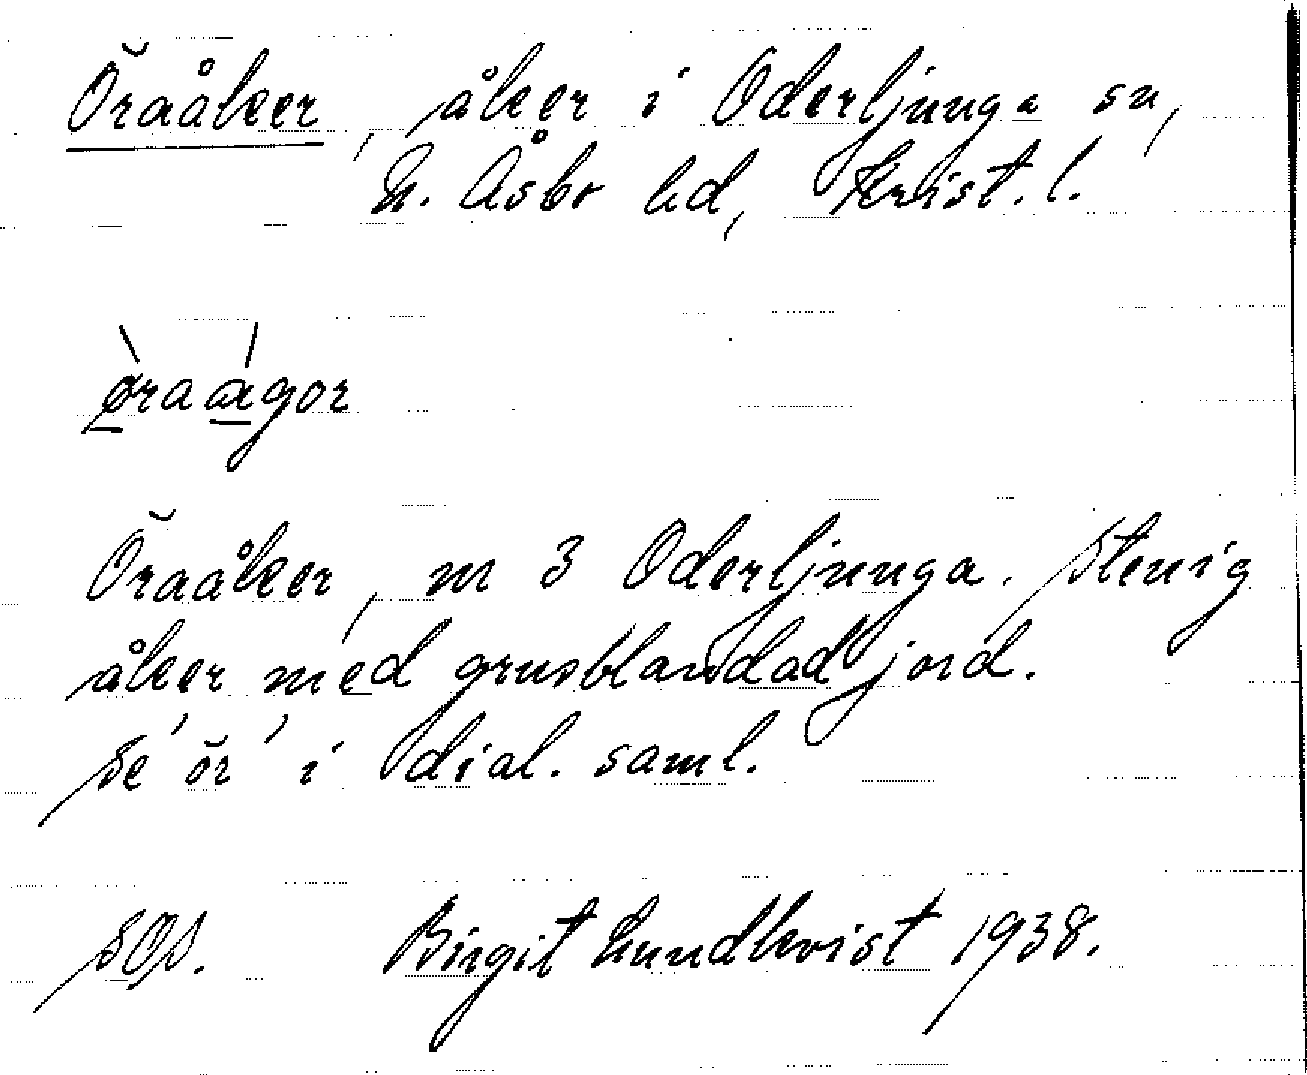 Öraåker, åker i Oderljunga sn,
N. Åsbo hd, Krist. l.
øraågor
Öraåker, m 3 Oderljunga. Stenig
åker med grusblandad jord.
Se 'ör' i dial. saml.
SOS. Birgit Lundkvist 1938.